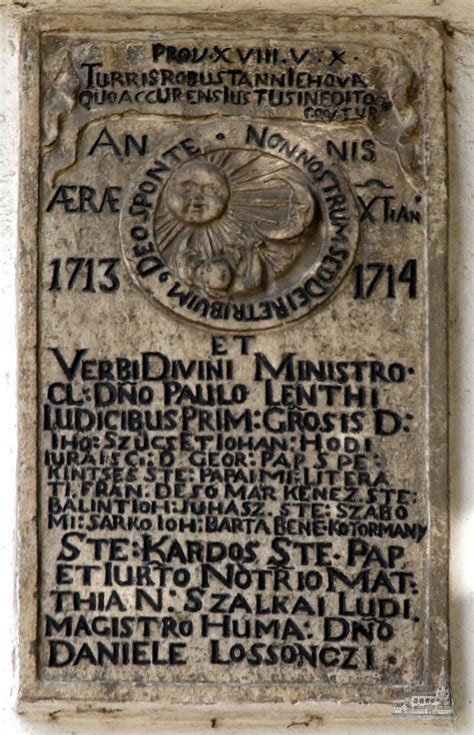 PROV·XVIII·V·X·
TURRIS ROBUSTA NNIEHOVA
QUO ACCURENS IUSTUS INEDITO
AN · NIS
NON NOSTRUM SED DEI RETRIBUIMUR DEO SPONTE
ÆRÆ XTIAN
1713 1714
ET
VERBI DIVINI MINISTRO·
CL: DÑO PAULO LENTHI
IUDICIBUS PRIM: GROSIS D:
IHO: SZUCS ET IOHAN: HODI
IURAIS CI: D GEOR: PAP, SPE
KINTSES STE: PAPAI MI: LITERA
TI. FRAN: DESÖ MAR KENEZ STE:
BALINT IOH: JUHASZ. STE: SZABO
MI: SARKO IOH: BARTA BENE·KOTORMANY
STE: KARDOS STE· PAP
ET IURTO NOTRIO MAT:
THIA N: SZALKAI LUDI.
MAGISTRO HUMA: DÑO
DANIELE LOSSONCZI·